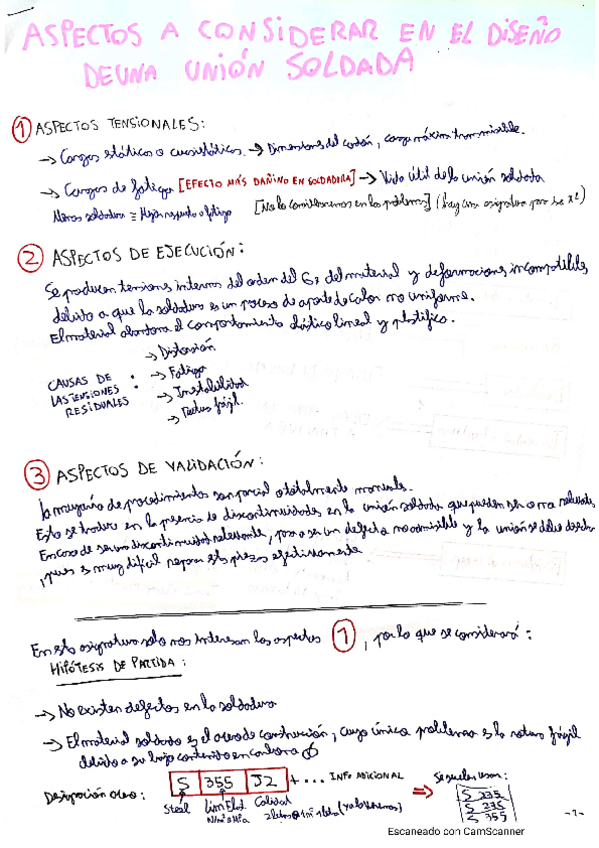 ASPECTOS A CONSIDERAR EN EL DISEÑO
DE UNA UNIÓN SOLDADA
① ASPECTOS TENSIONALES:
→ Cargas státicas o cuasistáticas. → Dimensiones del cordón, carga máxima transmisible.
→ Cargas de fatiga [EFECTO MÁS DAÑINO EN SOLDADURA] → Vida útil de la unión soldada
Menos soldadura ≡ Mejor respuesta a fatiga [No lo consideraremos en los problemas] (hay una asignatura para
② ASPECTOS DE EJECUCIÓN:
Se producen tensiones internas del orden del del material y deformaciones incompatibles,
debido a que la soldadura es un proceso de aporte de calor no uniforme.
El material abandona el comportamiento elástico lineal y plastifica.
CAUSAS DE LAS TENSIONES RESIDUALES :
→ Distorsión
→ Fatiga
→ Inestabilidad
→ Rotura frágil.
③ ASPECTOS DE VALIDACIÓN:
La mayoría de procedimientos son parcial o totalmente manuales.
Esto se traduce en la presencia de discontinuidades en la unión soldada que pueden ser o no relevantes.
En caso de ser una discontinuidad relevante, pasa a ser un defecto no admisible y la unión se debe
, pues es muy difícil reparar esta piezas efectivamente
En esta asignatura solo nos interesan los aspectos ①, por lo que se considerará:
HIPÓTESIS DE PARTIDA:
→ No existen defectos en la soldadura
→ El material soldado es el acero de construcción, cuyo único problema es la rotura frágil
debido a su bajo contenido en carbono
Designación acero: S 355 J2 + ... INFO ADICIONAL ⇒ Se suelen usar:
Steel Lim Elást Mínimo Calidad
S 235
S 355
-1-
Escaneado con CamScanner